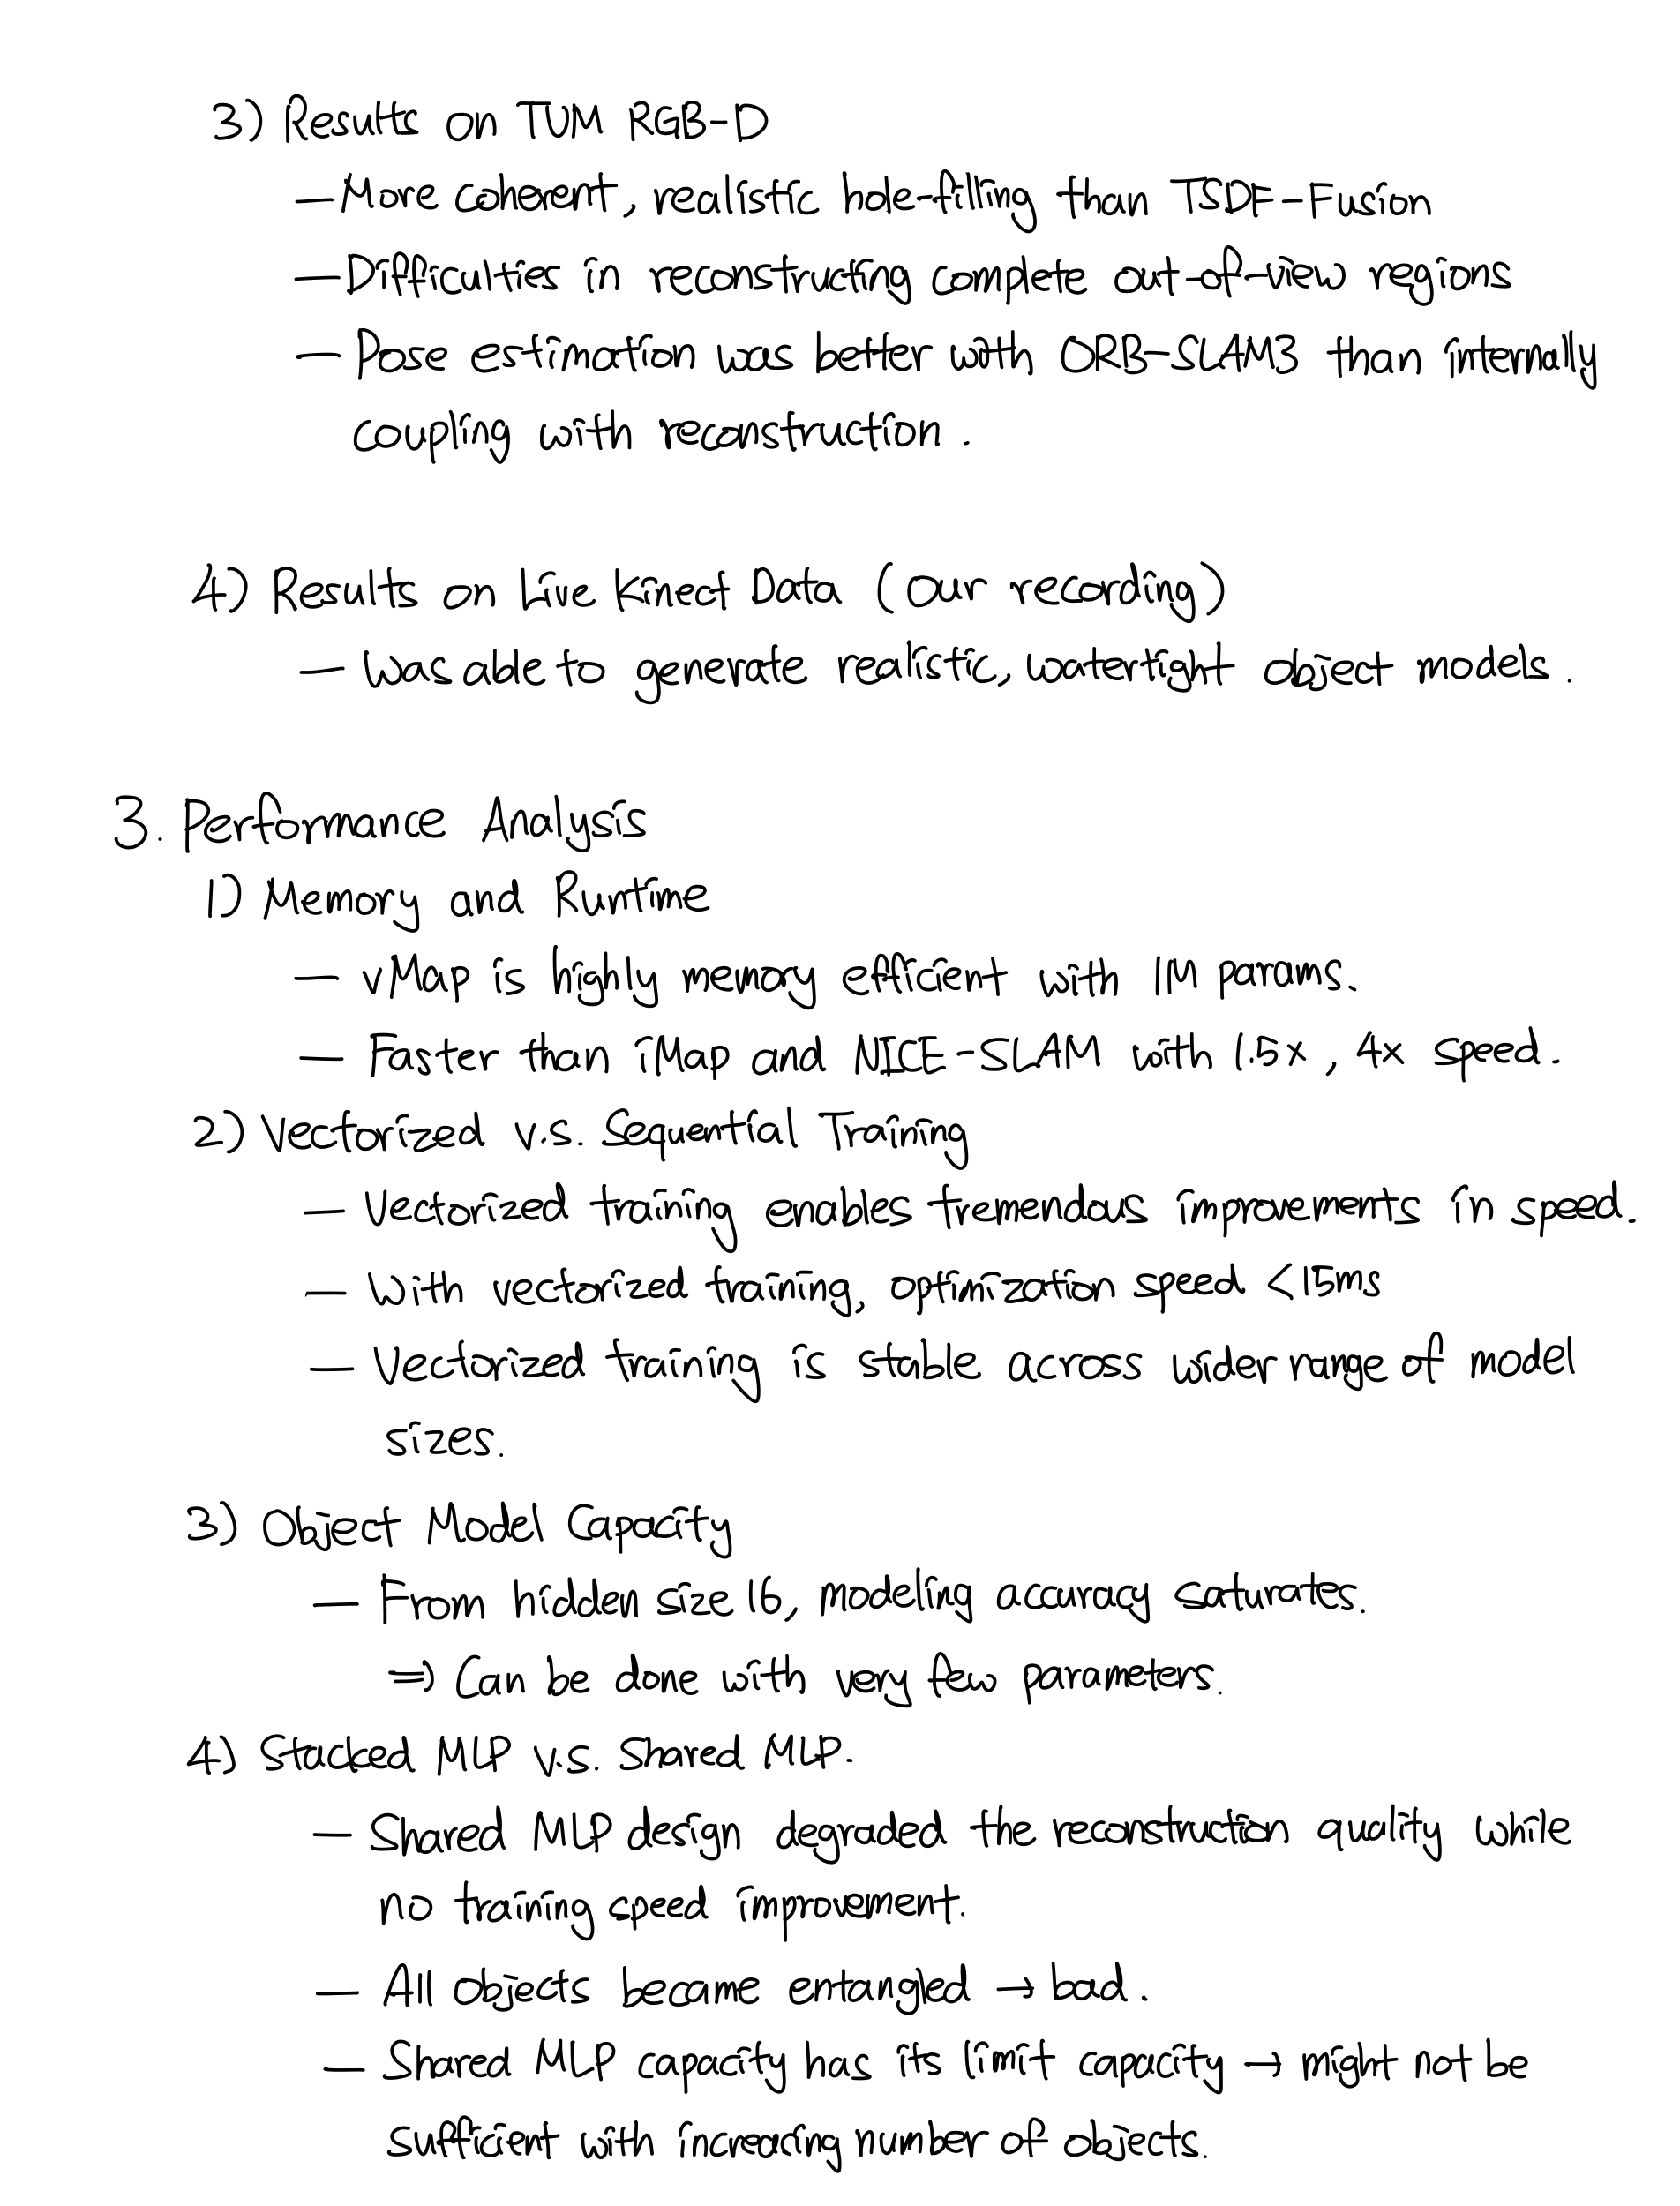 3) Results on TUM RGB-D
— More coherent, realistic hole-filling than TSDF-Fusion
— Difficulties in reconstructing complete out-of-view regions
— Pose estimation was better with ORB-SLAM3 than internally
coupling with reconstruction.
4) Results on Live Kinect Data (our recording)
— Was able to generate realistic, watertight object models.
3. Performance Analysis
1) Memory and Runtime
— vMap is highly memory efficient with 1M params.
— Faster than iMap and NICE-SLAM with 1.5x, 4x speed.
2) Vectorized v.s. Sequential Training
— Vectorized training enables tremendous improvements in speed.
— With vectorized training, optimization speed <15ms
— Vectorized training is stable across wider range of model
sizes.
3) Object Model Capacity
— From hidden size 16, modeling accuracy saturates.
⇒ Can be done with very few parameters.
4) Stacked MLP v.s. Shared MLP.
— Shared MLP design degraded the reconstruction quality while
no training speed improvement.
— All objects became entangled → bad.
— Shared MLP capacity has its limit capacity → might not be
sufficient with increasing number of objects.